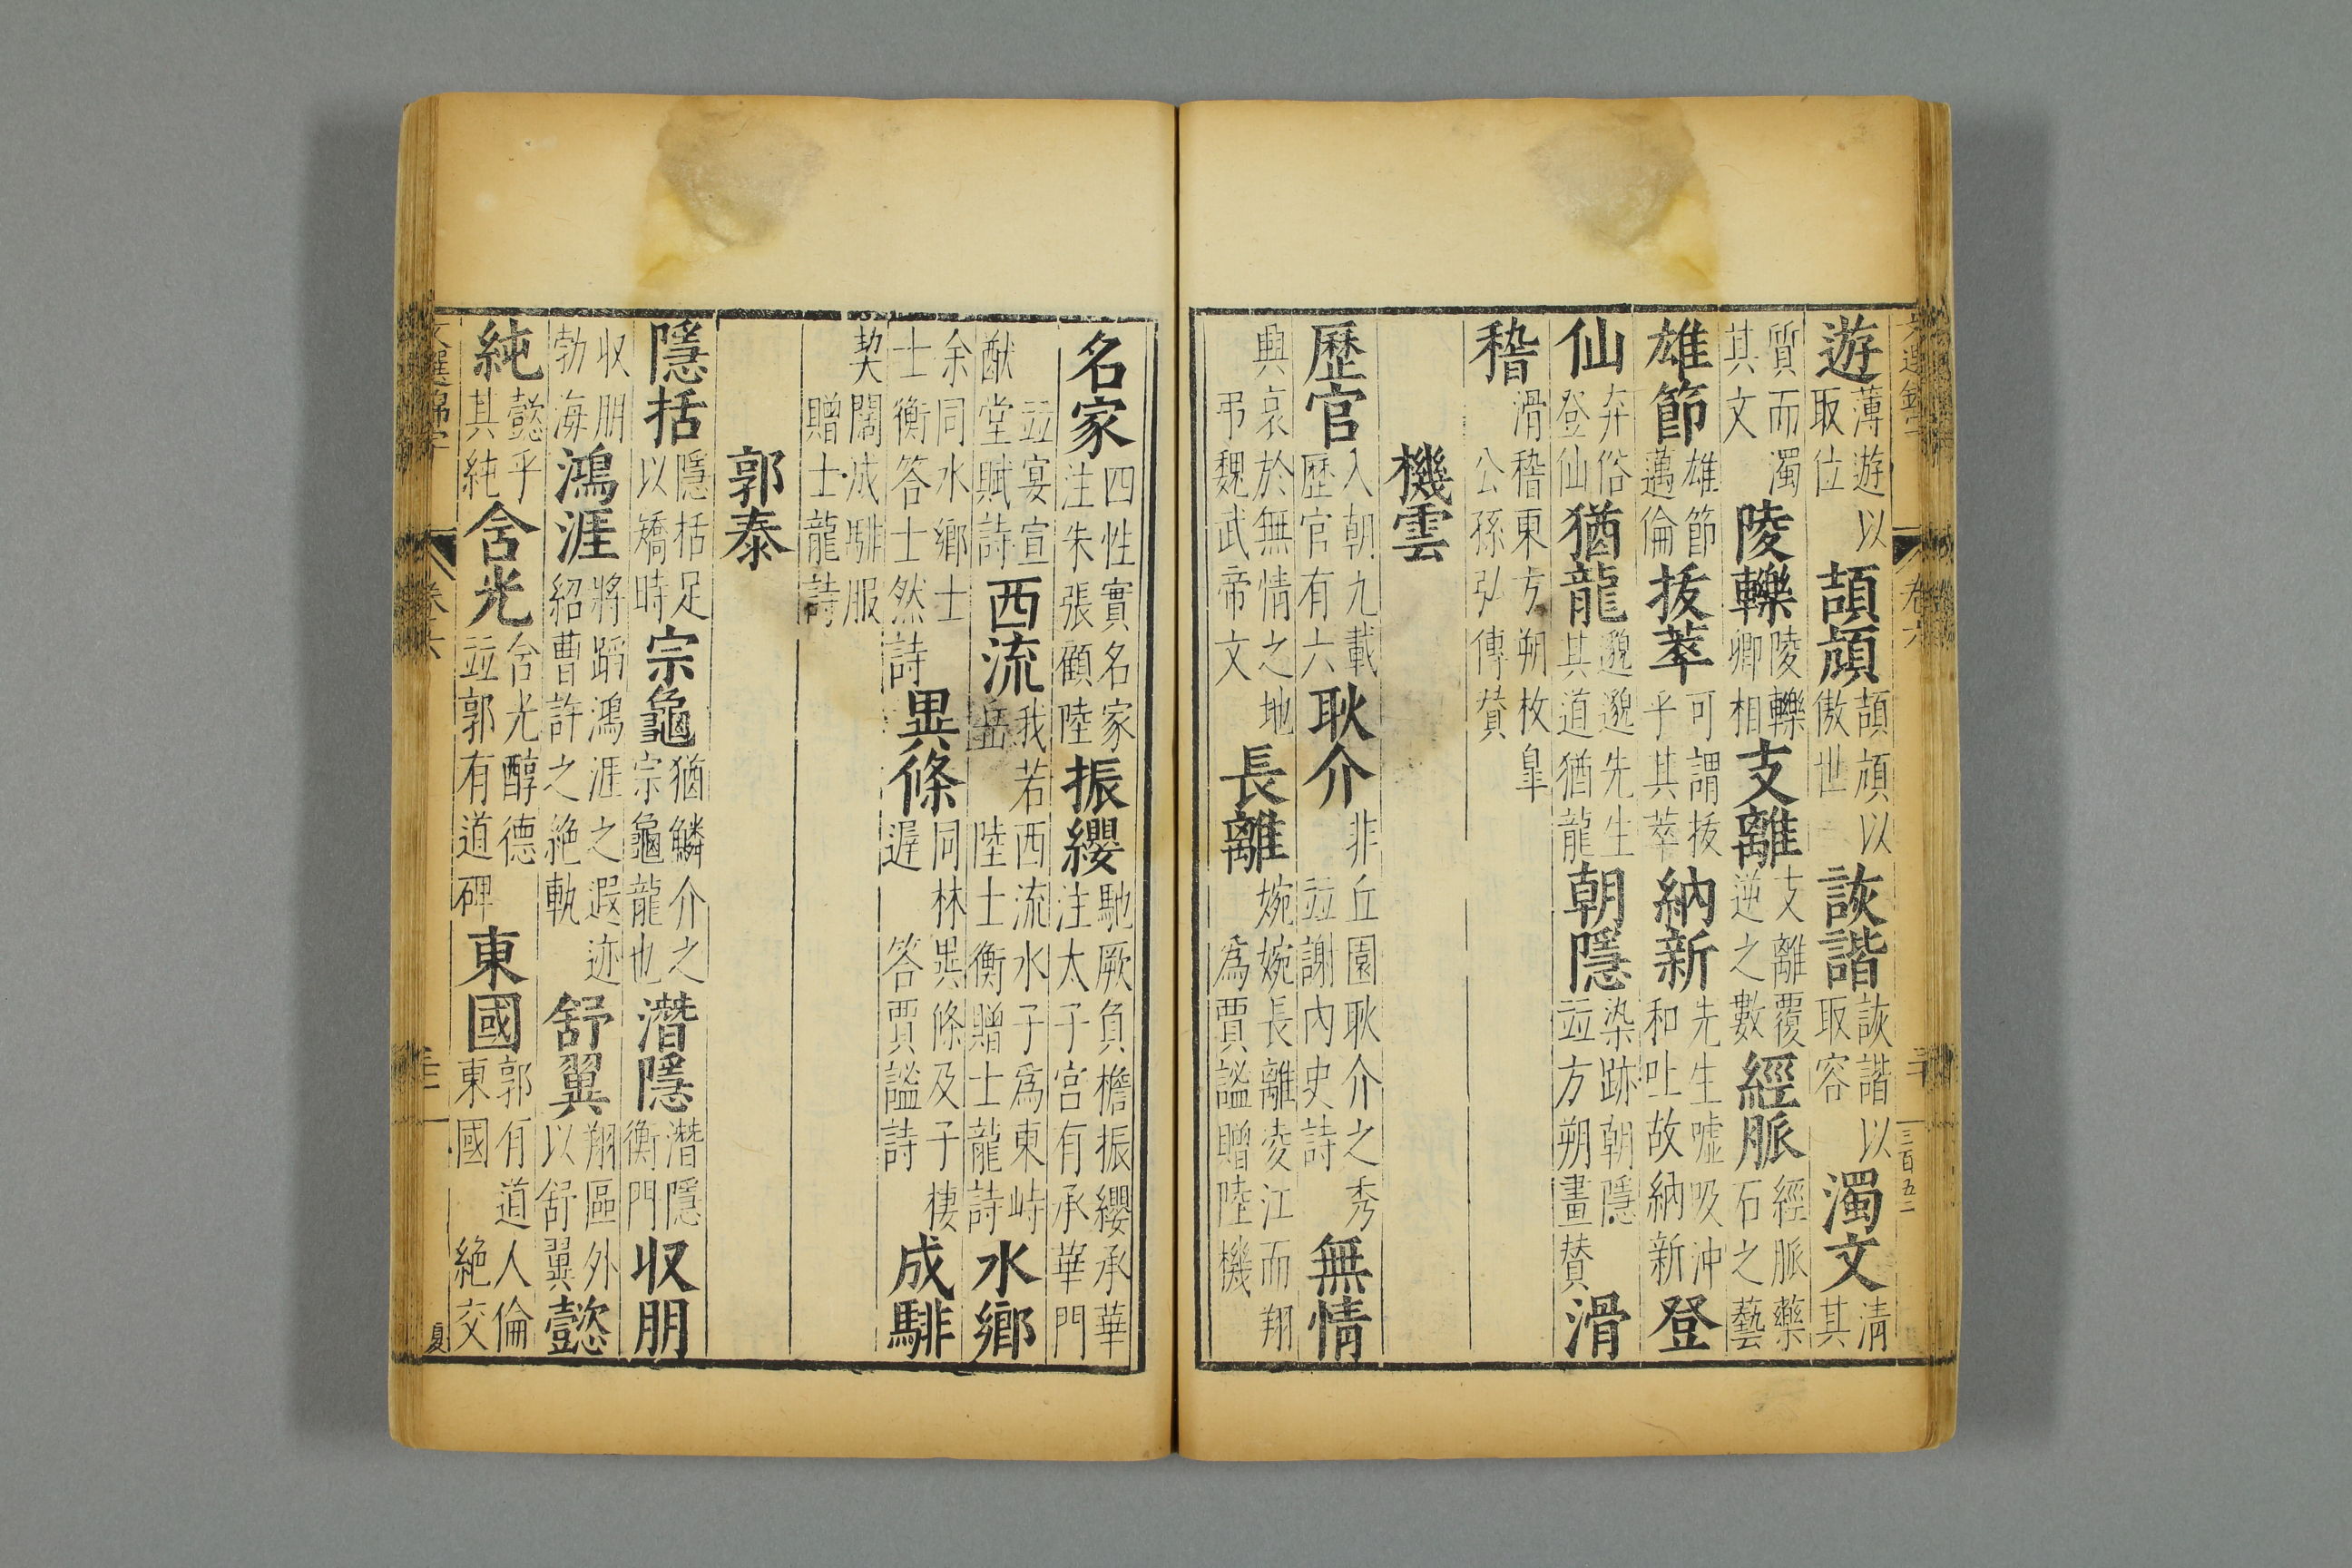 遊薄遊以取位頡頏頡頏以傲世詼諧詼諧以取容濁文清其
質而濁其文陵轢陵轢卿相支離支離覆逆之數經脈經脈藥石之藝
雄節雄節邁倫拔萃可謂拔乎其萃納新先生噓吸沖和吐故納新登
仙弃俗登仙猶龍邈邈先生其道猶龍朝隱染跡朝隱竝方朔畫賛滑
稽滑稽東方朔枚皐公孫弘傳賛
機雲
歷官入朝九載歷官有六耿介非丘園耿介之秀竝謝內史詩無情
興哀於無情之地弔魏武帝文長離婉婉長離凌江而翔爲賈謐贈陸機
名家四姓實名家注朱張顧陸振纓馳厥負檐振纓承華注太子宮有承華門
竝宴宣猷堂賦詩西流我若西流水子爲東峙岳陸士衡贈士龍詩水鄉
余同水鄉士士衡答士然詩異條同林異條及子棲遲答賈謐詩成騑
契闊成騑服贈士龍詩
郭泰
隱括隱括足以矯時宗龜猶鱗介之宗龜龍也潛隱潛隱衡門収朋
収朋勃海鴻涯將蹈鴻涯之遐迹紹曹許之絶軌舒翼翔區外以舒翼懿
純懿乎其純含光含光醇德竝郭有道碑東國郭有道人倫東國絶交
卷六
三百五二
卷六
夏